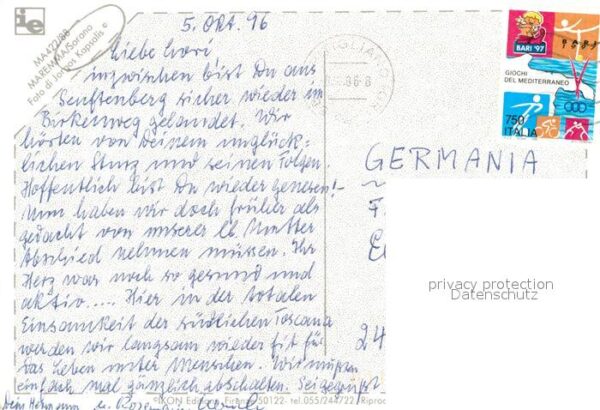 5. Okt. 96
MA427/88
MAREMMA/Sorano
Foto di Jonios Kapsalis ©
Liebe Lori
inzwischen bist Du aus
Senftenberg sicher wieder im
Birkenweg gelandet. Wir
hörten von Deinem unglück-
lichen Sturz und seinen Folgen.
Hoffentlich bist Du wieder genesen! -
Nun haben wir doch früher als
gedacht von unserer lb. Mutter
Abschied nehmen müssen. Ihr
Herz war noch so gesund und
aktiv.... Hier in der totalen
Einsamkeit der südlichen Toscana
werden wir langsam wieder fit für
das Leben unter Menschen. Wir mußten
einfach mal gänzlich abschalten. Sei gegrüßt
Dein Hermann u. Rosemarie
©IKON Editrice Firenze 50122 - tel. 055/244722 / Riproc
BARI '97
GIOCHI
DEL MEDITERRANEO
750
ITALIA
GERMANIA
24
privacy protection
Datenschutz